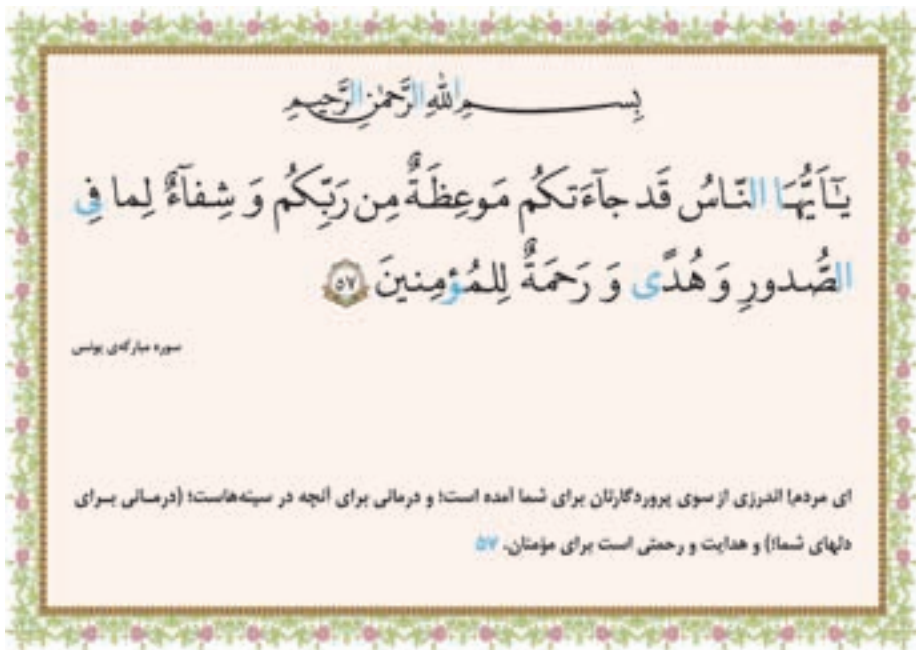 بِسمِ اللهِ الرَّحمٰنِ الرَّحيمِ
يٰٓاَيُّهَا النّاسُ قَد جآءَتكُم مَوعِظَةٌ مِن رَبِّكُم وَ شِفآءٌ لِما فِی
الصُّدورِ وَ هُدًی وَ رَحمَةٌ لِلمُؤمِنینَ ۵۷
سوره مبارکه‌ی یونس
ای مردم! اندرزی از سوی پروردگارتان برای شما آمده است؛ و درمانی برای آنچه در سینه‌هاست؛ (درمـانی بـرای
دلهای شما؛) و هدایت و رحمتی است برای مؤمنان. ۵۷